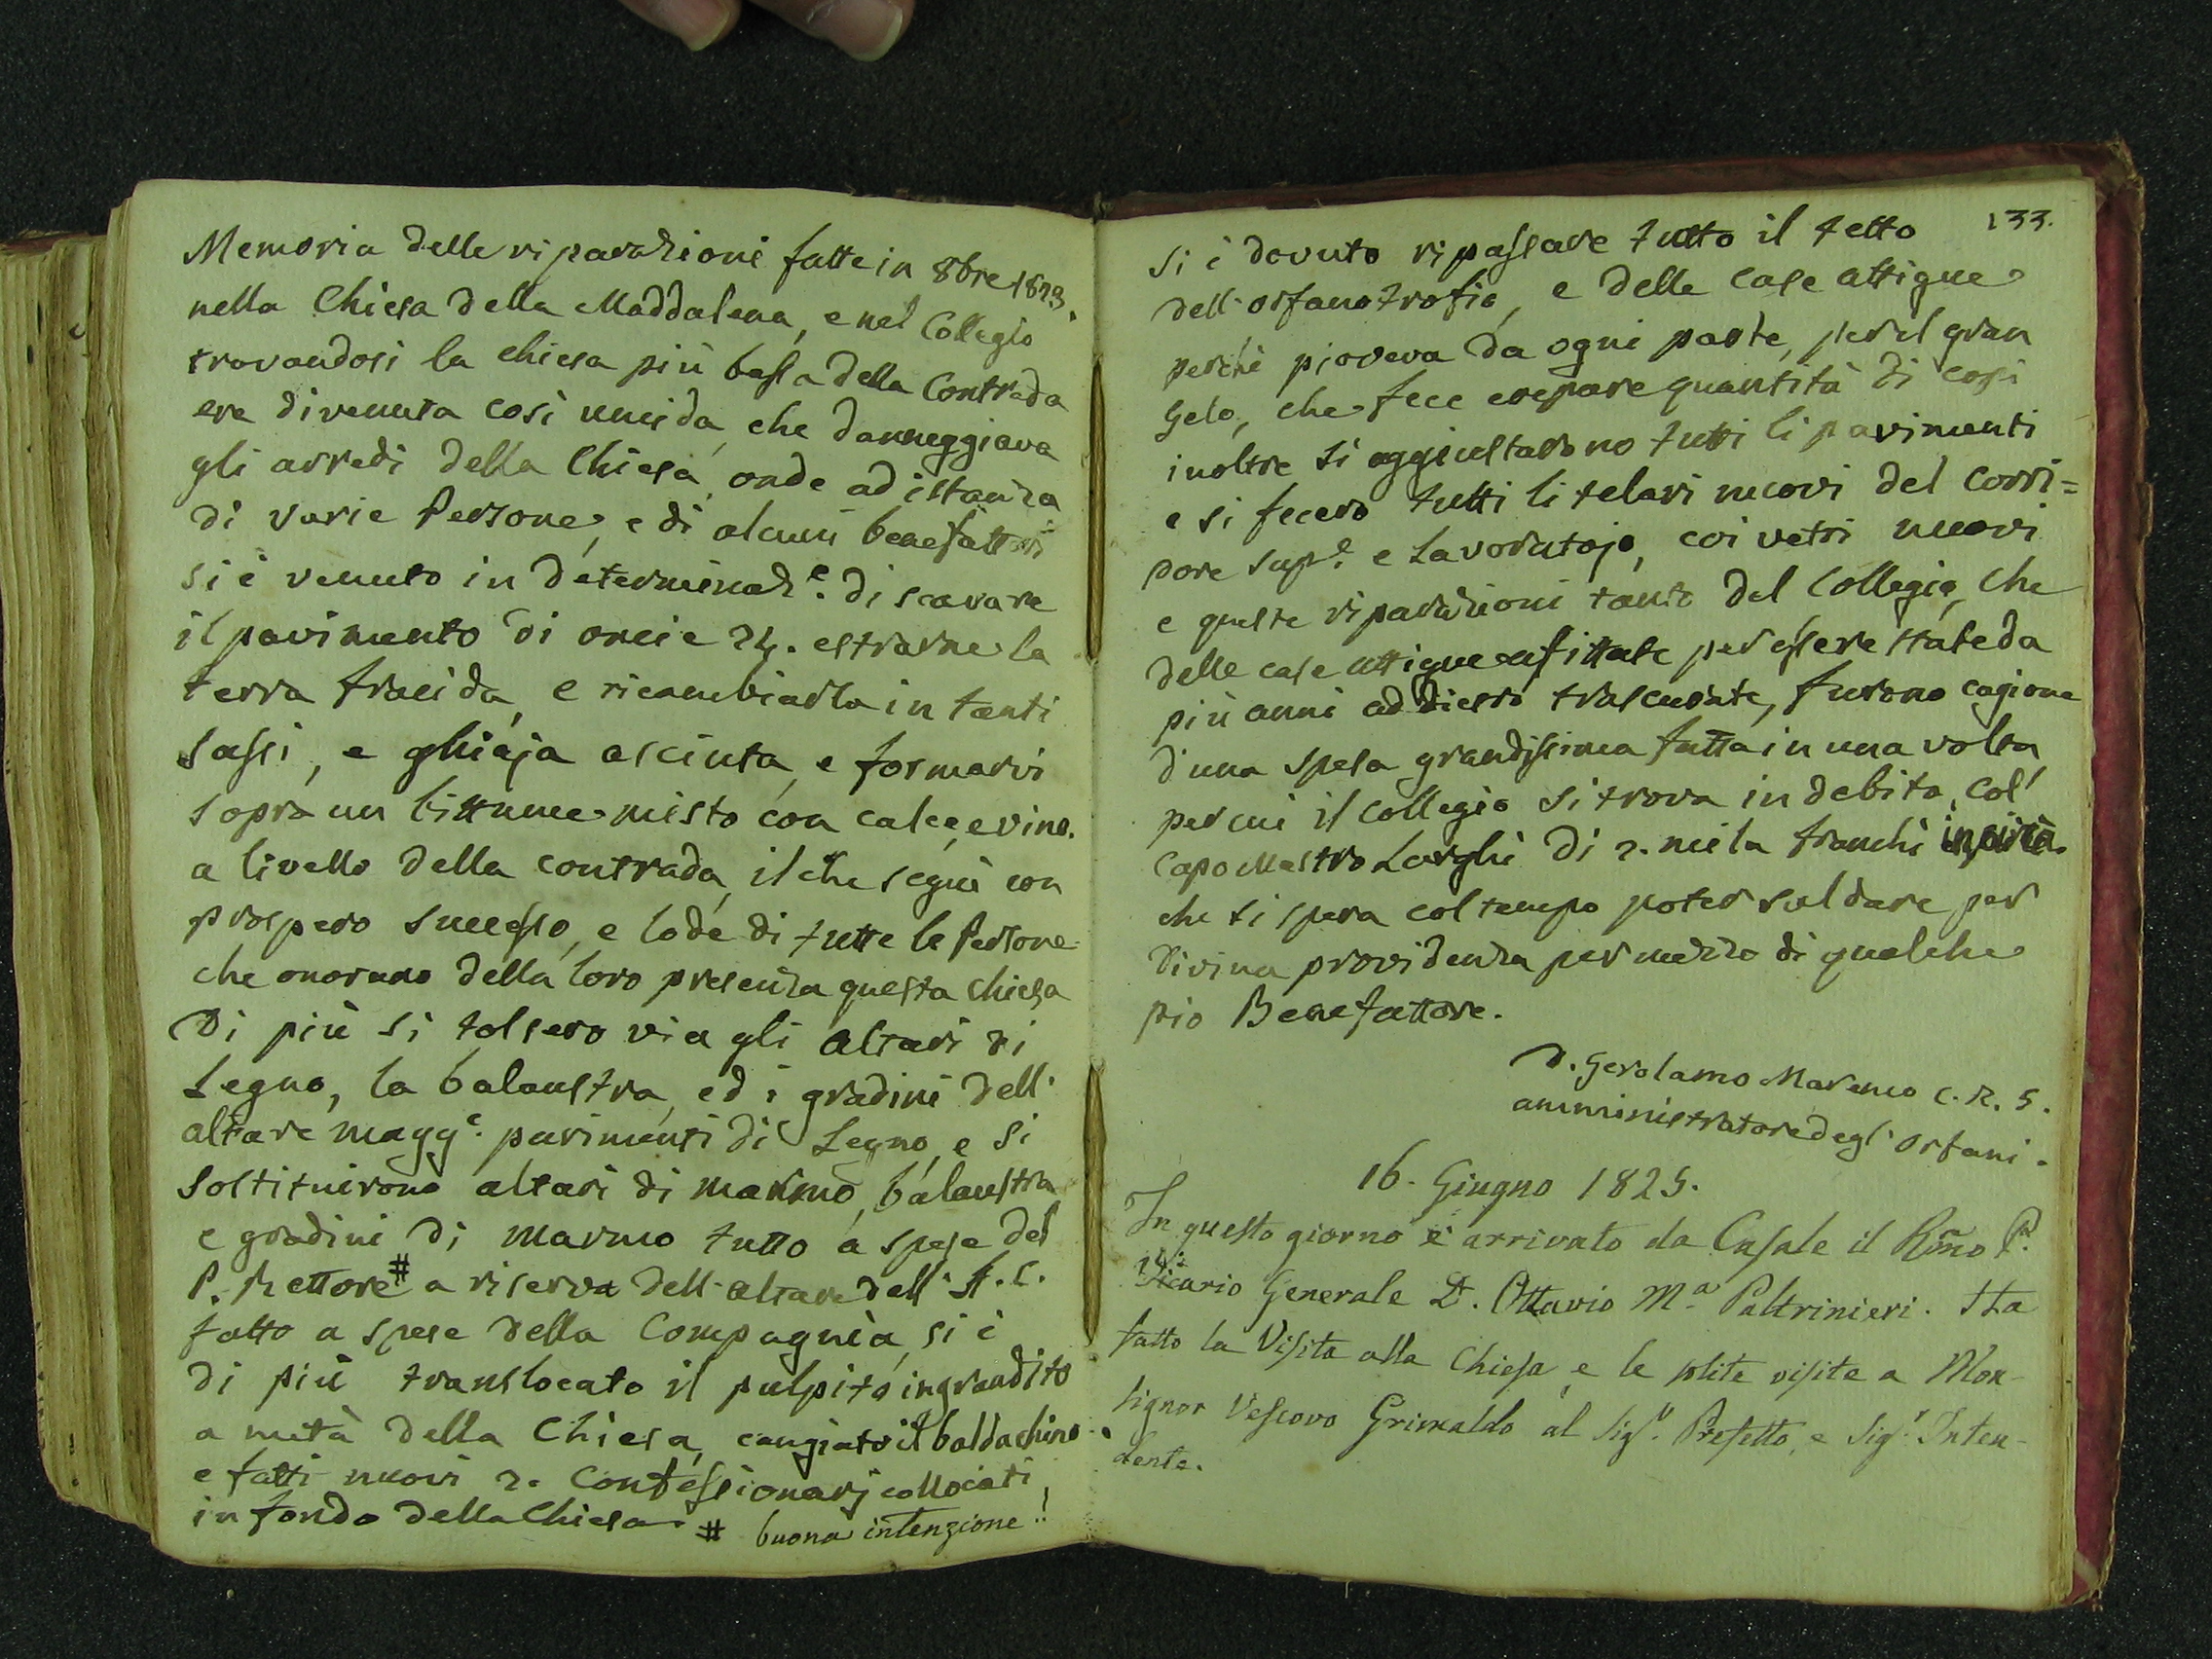 Memoria delle riparazioni fatte in 8bre 1823.
nella Chiesa della Maddalena, e nel Collegio
trovandosi la chiesa più bassa della Contrada
era divenuta così umida, che danneggiava
gli arredi della Chiesa, onde ad istanza
di varie Persone, e di alcuni benefattori
si è venuto in determinaz.e di scavare
il pavimento di oncie 24. estrarne la
terra fracida, e ricambiarla in tanti
sassi, e ghiaja asciuta, e formarvi
sopra un bittume misto con calce, e vino.
a livello della contrada, il che seguì con
prospero sucesso, e lode di tutte le Persone
che onorano della loro presenza questa chiesa
Di più si tolsero via gli altari di
Legno, la balaustra, ed i gradini dell'
altare magg.e pavimenti di Legno, e si
sostituirono altari di marmo, balaustra
e gradini di marmo tutto a spese del
P. Rettore # a riserva dell'altare dell' A. C.
fatto a spese della Compagnia, si è
di più translocato il pulpito ingrandito
a metà della Chiesa, cangiato il baldachino
e fatti nuovi 2. Confessionarj collocati
in fondo della Chiesa. # buona intenzione!!
133.
si è dovuto ripassare tutto il tetto
dell'orfanotrofio, e delle case attigue
perchè pioveva da ogni parte, per il gran
gelo, che fece crepare quantità di copi
inoltre si aggiustarono tutti li pavimenti
e si fecero tutti li telari nuovi del Corri=
dore sup.e e Lavoratojo, coi vetri nuovi
e queste riparazioni tanto del Collegio, che
delle case attigue affittate per essere state da
più anni addietro trascurate, furono cagione
d'una spesa grandissima fatta in una volta,
per cui il collegio si trova in debito, col'
Capo Mastro Larghi di 2. mila franchi in circa.
che si spera col tempo poter saldare per
Divina providenza per mezzo di qualche
pio Benefattore.
D. Gerolamo Marenco C. R. S.
amministratore degl' Orfani.
16. Giugno 1825.
In questo giorno è arrivato da Casale il Rmo P.
Vicario Generale D. Ottavio M.a Paltrinieri. Ha
fatto la Visita alla Chiesa, e le solite visite a Mon-
signor Vescovo Grimaldo al Sig.r Prefetto, e Sig.r Inten-
dente.